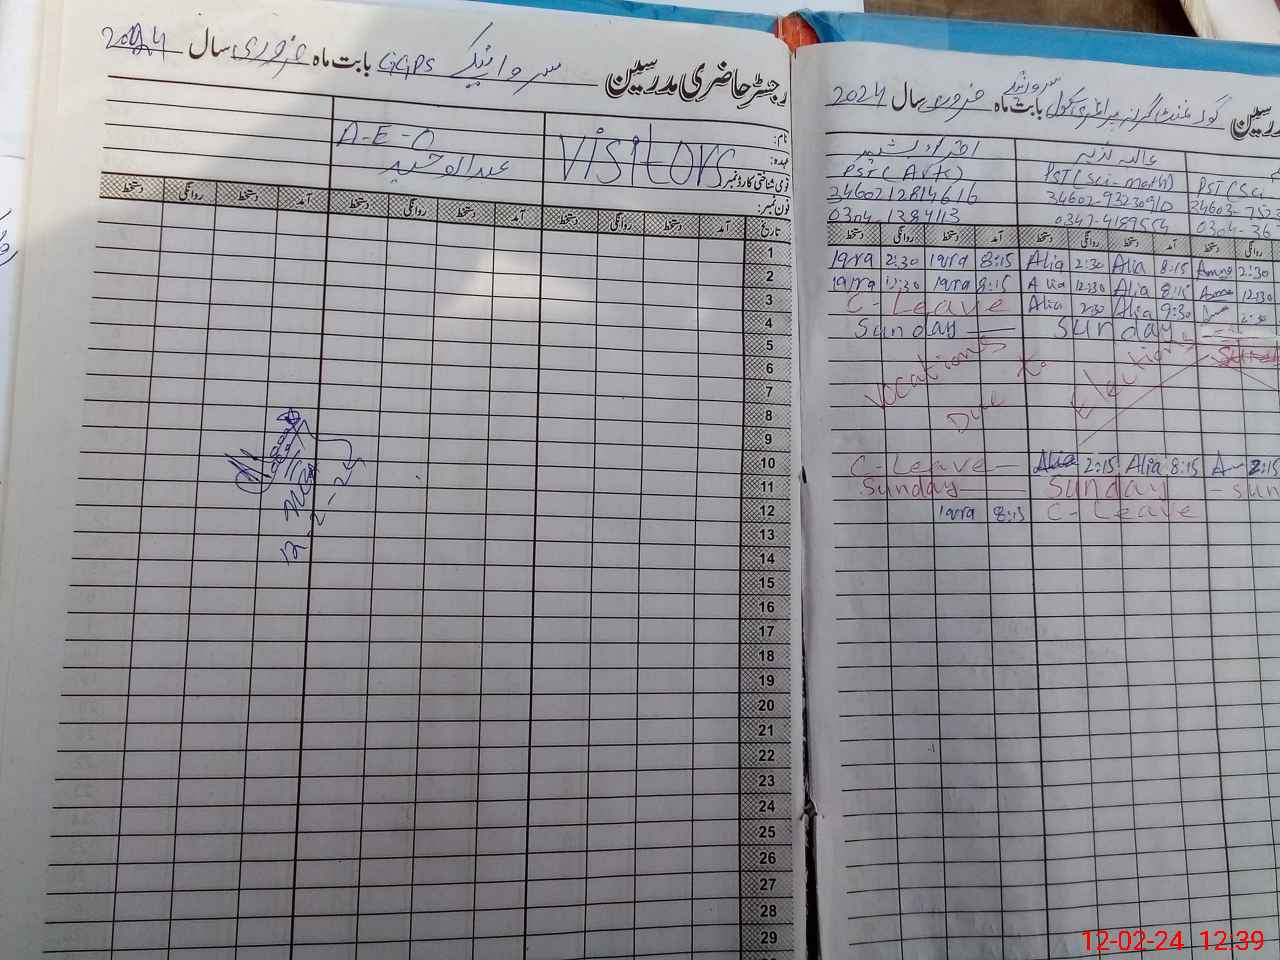 رجسٹر حاضری مدرسین سروانیکے GGPS بابت ماہ فروری سال 2024
نام:
عہدہ:
قومی شناختی کارڈ نمبر:
فون نمبر:
Visitors
A-E-O
عبدالوحید
تاریخ آمد دستخط روانگی دستخط آمد دستخط روانگی دستخط آمد دستخط روانگی دستخط
1
2
3
4
5
6
7
8
9
10
11
12
13
14
15
16
17
18
19
20
21
22
23
24
25
26
27
28
29
12-2-24
گورنمنٹ گرلز پرائمری سکول سروانیکے بابت ماہ فروری سال 2024
عالیہ نذیر
PST (Sci-math) PST (Sci
PST (Arts)
34602-9323091
34603-752
3460212814616
0347-4189554
0304-36
0304-1284113
دستخط روانگی دستخط آمد دستخط روانگی دستخط آمد دستخط روانگی
Iqra 2:30 Iqra 8:15 Alia 2:30 Alia 8:15 Amna 2:30
Iqra 12:30 Iqra 8:15 Alia 12:30 Alia 8:15 12:30
C-Leave Alia 2:30 Alia 9:30
Sunday Sunday
Vocations Due to Elections
C-Leave Alia 2:15 Alia 8:15 2:15
Sunday Sunday Sun
Iqra 8:15 C-Leave
12-02-24 12:39